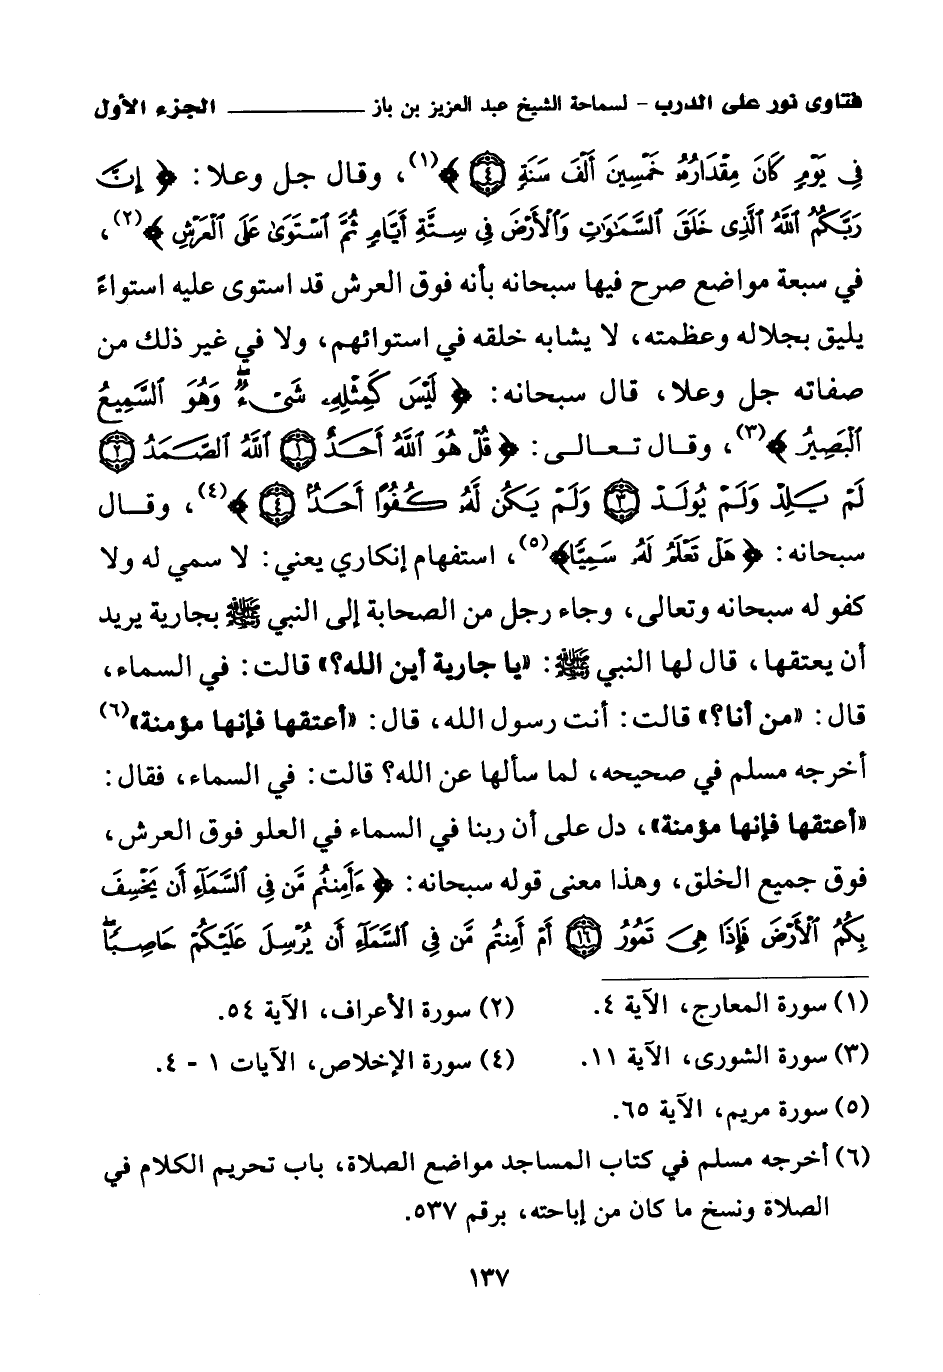 فتاوى نور على الدرب - لسماحة الشيخ عبد العزيز بن باز ـــــــــ الجزء الأول
فِى يَوْمٍ كَانَ مِقْدَارُهُۥ خَمْسِينَ أَلْفَ سَنَةٍ ۝٤ ﴾(١)، وقال جل وعلا: ﴿ إِنَّ
رَبَّكُمُ ٱللَّهُ ٱلَّذِى خَلَقَ ٱلسَّمَٰوَٰتِ وَٱلْأَرْضَ فِى سِتَّةِ أَيَّامٍ ثُمَّ ٱسْتَوَىٰ عَلَى ٱلْعَرْشِ ﴾(٢)،
في سبعة مواضع صرح فيها سبحانه بأنه فوق العرش قد استوى عليه استواءً
يليق بجلاله وعظمته، لا يشابه خلقه في استوائهم، ولا في غير ذلك من
صفاته جل وعلا، قال سبحانه: ﴿ لَيْسَ كَمِثْلِهِۦ شَىْءٌ ۖ وَهُوَ ٱلسَّمِيعُ
ٱلْبَصِيرُ ﴾(٣)، وقـال تـعـالـى: ﴿ قُلْ هُوَ ٱللَّهُ أَحَدٌ ۝١ ٱللَّهُ ٱلصَّمَدُ ۝٢
لَمْ يَلِدْ وَلَمْ يُولَدْ ۝٣ وَلَمْ يَكُن لَّهُۥ كُفُوًا أَحَدٌۢ ۝٤ ﴾(٤)، وقـال
سبحانه: ﴿ هَلْ تَعْلَمُ لَهُۥ سَمِيًّا﴾(٥)، استفهام إنكاري يعني: لا سمي له ولا
كفو له سبحانه وتعالى، وجاء رجل من الصحابة إلى النبي ﷺ بجارية يريد
أن يعتقها، قال لها النبي ﷺ: «يا جارية أين الله؟» قالت: في السماء،
قال: «من أنا؟» قالت: أنت رسول الله، قال: «أعتقها فإنها مؤمنة»(٦)
أخرجه مسلم في صحيحه، لما سألها عن الله؟ قالت: في السماء، فقال:
«أعتقها فإنها مؤمنة»، دل على أن ربنا في السماء في العلو فوق العرش،
فوق جميع الخلق، وهذا معنى قوله سبحانه: ﴿ ءَأَمِنتُم مَّن فِى ٱلسَّمَآءِ أَن يَخْسِفَ
بِكُمُ ٱلْأَرْضَ فَإِذَا هِىَ تَمُورُ ۝١٦ أَمْ أَمِنتُم مَّن فِى ٱلسَّمَآءِ أَن يُرْسِلَ عَلَيْكُمْ حَاصِبًا ۖ
(١) سورة المعارج، الآية ٤. (٢) سورة الأعراف، الآية ٥٤.
(٣) سورة الشورى، الآية ١١. (٤) سورة الإخلاص، الآيات ١ - ٤.
(٥) سورة مريم، الآية ٦٥.
(٦) أخرجه مسلم في كتاب المساجد مواضع الصلاة، باب تحريم الكلام في
الصلاة ونسخ ما كان من إباحته، برقم ٥٣٧.
١٣٧